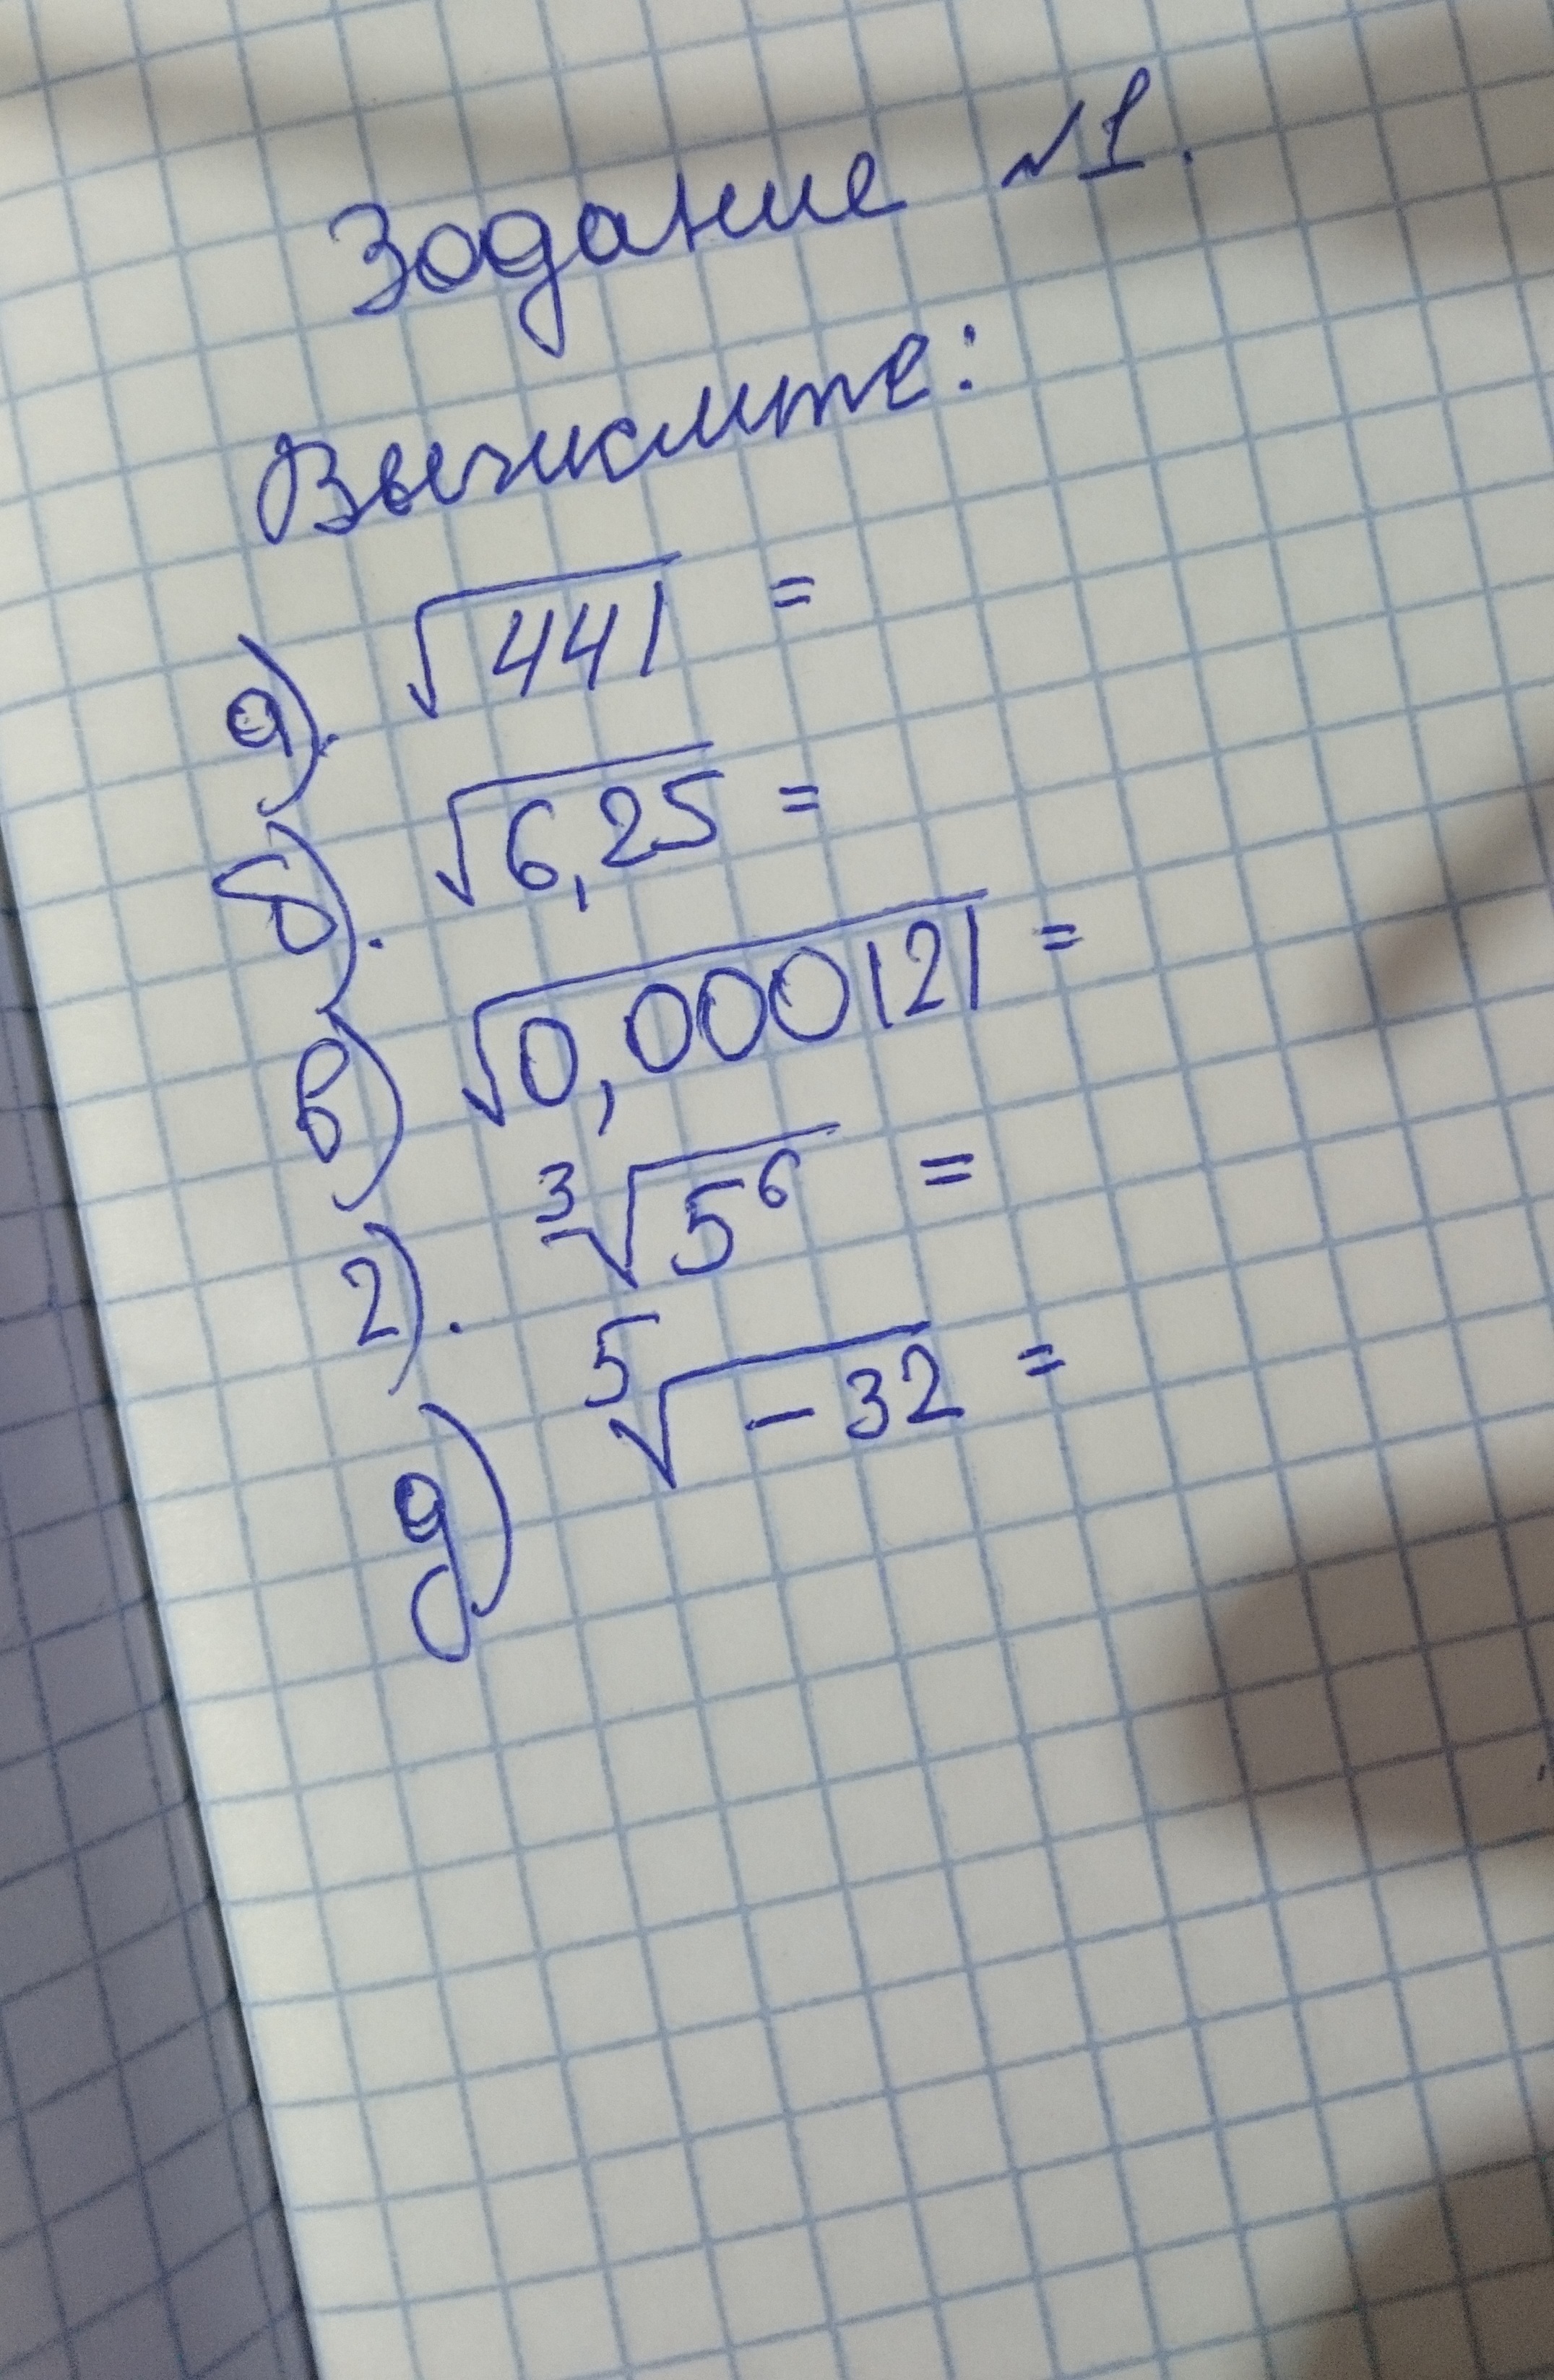 Задание №1.
Вычислите:
а). √441 =
б). √6,25 =
в) √0,000121 =
г). ³√5⁶ =
д) ⁵√-32 =